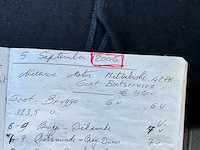 5 September 2006
Nieuwe Motor Mitsubishi 42 PK
Gent Bootservice
Gent Brugge 6 u 6 u
323,5 u
6-9 Brugge - Diksmuide 7 u
7-9 Diksmuide